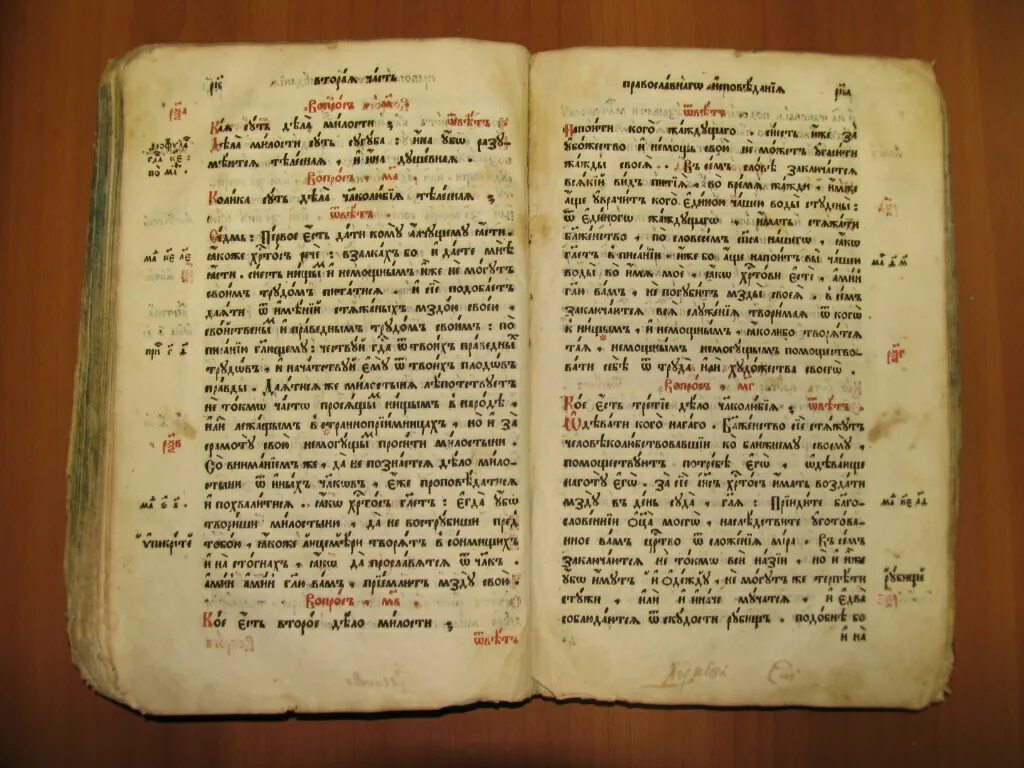 втораѧ часть
Вопросъ . м҃ .
Каѧ сꙋть дѣла милости ; Ѿвѣтъ .
Дѣла милости сꙋть сꙋгꙋба : ина ᲂубѡ разꙋ-
мѣютсѧ тѣлеснаѧ , и ина дꙋшевнаѧ .
Вопросъ . ма .
Колика сꙋть дѣла чл҃колюбїѧ тѣлеснаѧ ;
Ѿвѣтъ .
Седмь : Первое єсть дати комꙋ алчꙋщемꙋ ꙗсти .
ꙗкоже хрⷭ҇тосъ рече : взалкахъ бо и дасте мнѣ
ꙗсти . сиесть нищы и немощнымъ иже не могꙋтъ
своимъ трꙋдомъ питатисѧ . и сїе подобаетъ
даѧти ѿ имѣнїй стѧженныхъ мздою своеи ,
свойственымъ и праведнымъ трꙋдомъ своимъ : по
писанїю гл҃ющемꙋ : чествꙋй гдⷭ҇а ѿ твоихъ праведныхъ
трꙋдѡвъ , и начатствꙋй ємꙋ ѿ твоихъ плодѡвъ
правды . Даѧтисѧже милостынѧ лѣпотствꙋетъ
не токмѡ частѡ просѧщымъ нищымъ в народѣ ,
или лежащымъ в страннопрїимницахъ , но и за
срамотꙋ свою немогꙋщымъ просити милостыни .
Со вниманїемъ же , да не познаетсѧ дѣло мило-
стыни ѿ иныхъ чл҃кѡвъ , єже проповѣдатисѧ
и похвалитисѧ . ꙗкѡ хрⷭ҇тосъ гл҃етъ : єгда ᲂубѡ
твориши милостыню , да не вострꙋбиши пред
тобою , ꙗкоже лицемѣри творѧтъ в сонмищихъ
и на стогнахъ , ꙗкѡ да прославѧтсѧ ѿ чл҃къ .
аминь аминь гл҃ю вамъ , прїемлютъ мздꙋ свою
Вопросъ . мв .
Кое єсть второе дѣло милости ; Ѿвѣтъ
ма ке ле
ᲂупикрїте
православнагѡ исповѣданїѧ
Ѿвѣтъ .
Напоити кого жаждꙋщаго . сиесть иже за
ᲂубожество и немощь свою не можетъ ᲂугасити
жажды своеѧ . Въ семъ словѣ заключаетсѧ
всѧкїй видъ питїѧ , во времѧ жажди , имже
аще ᲂукрачитъ кого единою чашею воды стꙋдены :
ѿ единогѡ жаждꙋщагѡ , имать стѧжати
блаженство , по словесемъ сп҃са нашегѡ , ꙗкѡ
гл҃етъ в писанїи , иже бо аще напоитъ вы чашею
воды во имѧ мое , ꙗкѡ хрⷭ҇тови єсте , аминь
гл҃ю вамъ , не погꙋбитъ мзды своеѧ . в семъ
заключаетсѧ всѧ слꙋженїѧ творимаѧ ѿ когѡ
к нищымъ , и немощнымъ , ꙗколибо творѧтсѧ
таѧ , немощнымъ немогꙋщымъ помощество-
вати себѣ ѿ трꙋда или хꙋдожества своегѡ .
Вопросъ . мг
Кое єсть третїе дѣло чл҃колюбїѧ ; Ѿвѣтъ .
Ѡдевати кого нагаго . Блаженство сїе стѧжꙋтъ
человѣколюбствовавшїи ко ближнемꙋ своемꙋ ,
помоществꙋютъ потребѣ єгѡ , ѡдевающе
наготꙋ єгѡ . за сїе іисъ хрⷭ҇тосъ имать воздати
мздꙋ въ день сꙋда , гл҃ѧ : Прїидите благо-
словеннїи ѻц҃а моегѡ , наслѣдствите ᲂуготова-
нное вамъ црⷭ҇тво ѿ сложенїѧ мїра . Въ семъ
заключаютсѧ не токмѡ вси назїи , но и иже
ᲂубѡ имꙋтъ и ѻдеждꙋ , не могꙋтъ же терпѣти
стꙋжи , или и иначе мꙋчатсѧ , и едва
соблюдаютсѧ ѿ скꙋдости рꙋбищъ . подобнѣ бо
и на
рꙋбище